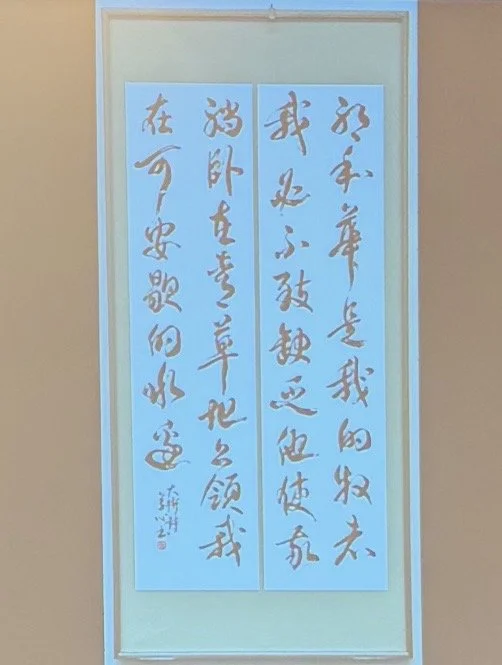 耶和華是我的牧者
我必不致缺乏他使我
躺臥在青草地上領我
在可安歇的水邊